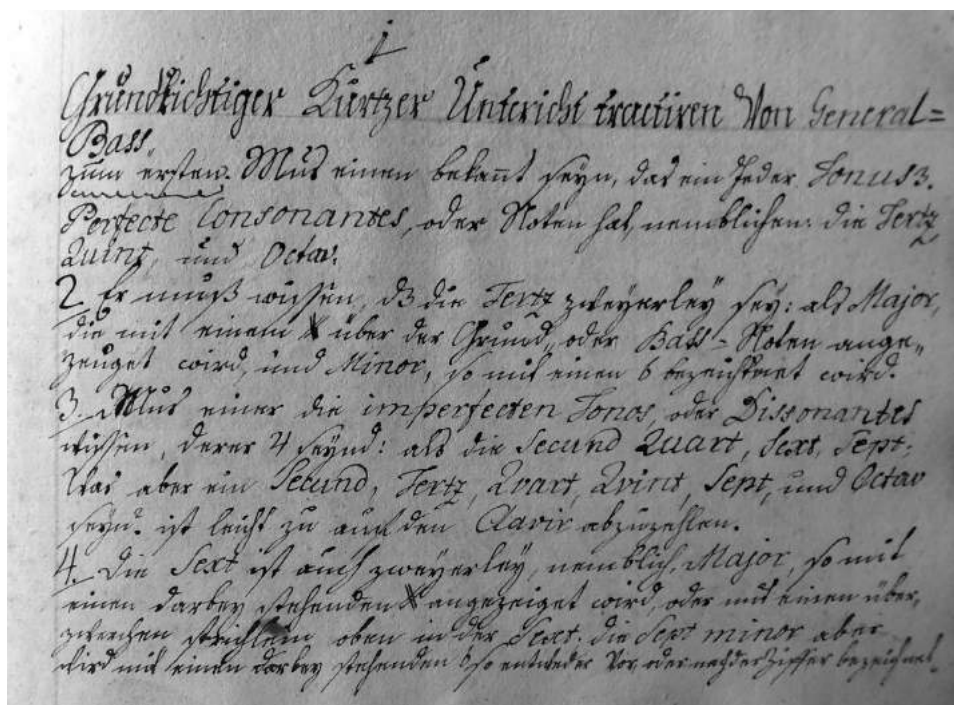 1
Grundrichtiger Kurtzer Untericht tractiren Von General=
Bass
zum ersten. Mus einen bekant seyn, das ein Jeder Tonus 3.
Perfecte Consonantes, oder Noten hat, nemblichen: die Tertz
Quint, und Octav.
2 Er muß wissen, dz die Tertz zweyerley sey: als Major,
die mit einem # über der Grund„ oder Bass=Noten ange„
zeuget wird, und Minor, so mit einen b bezeichnet wird.
3. Mus einer die imperfecten Tonos, oder Dissonantes
wissen, derer 4 seynd: als die Secund Quart, Sext, Sept:
Was aber ein Secund, Tertz, Qvart, Qvint, Sept, und Octav
seyn. ist leicht zu auf den Clavir abzuzehlen.
4. Die Sext ist auch zweyerley, nemblich, Major, so mit
einen darbey stehenden # angezeiget wird, oder mit einen über,
zwerchen strichlein oben in der Sext. die Sept minor aber
wird mit einen darbey stehenden b so entweder Vor, oder nach der Ziffer bezeichnet.